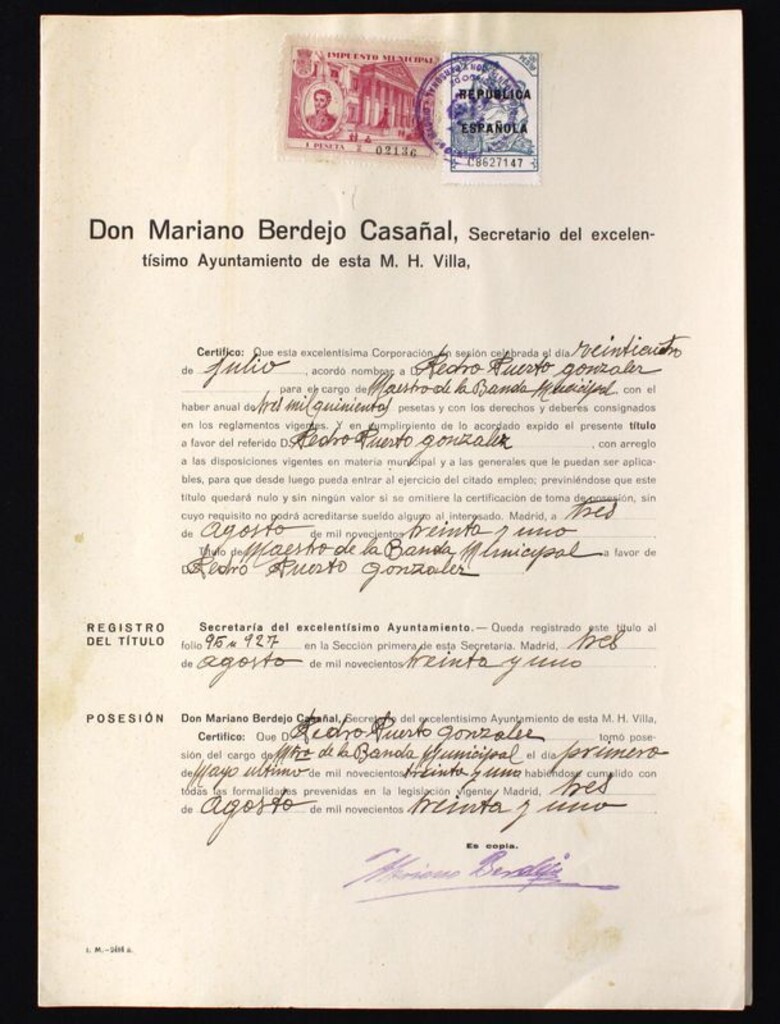 IMPUESTO MUNICIPAL
1 PESETA
02136
REPÚBLICA
ESPAÑOLA
C8627147
Don Mariano Berdejo Casañal, Secretario del excelen-
tísimo Ayuntamiento de esta M. H. Villa,
Certifico: Que esta excelentísima Corporación, en sesión celebrada el día veinticuatro
de julio, acordó nombrar a D. Pedro Puerto gonzalez
para el cargo de Maestro de la Banda Municipal, con el
haber anual de tres mil quinientas pesetas y con los derechos y deberes consignados
en los reglamentos vigentes. Y en cumplimiento de lo acordado expido el presente título
a favor del referido D. Pedro Puerto gonzalez, con arreglo
a las disposiciones vigentes en materia municipal y a las generales que le puedan ser aplica-
bles, para que desde luego pueda entrar al ejercicio del citado empleo; previniéndose que este
título quedará nulo y sin ningún valor si se omitiere la certificación de toma de posesión, sin
cuyo requisito no podrá acreditarse sueldo alguno al interesado. Madrid, a tres
de agosto de mil novecientos treinta y uno
Título de Maestro de la Banda Municipal a favor de
D. Pedro Puerto gonzalez
REGISTRO
DEL TÍTULO
Secretaría del excelentísimo Ayuntamiento.— Queda registrado este título al
folio 95 n 927 en la Sección primera de esta Secretaría. Madrid, tres
de agosto de mil novecientos treinta y uno
POSESIÓN
Don Mariano Berdejo Casañal, Secretario del excelentísimo Ayuntamiento de esta M. H. Villa,
Certifico: Que D. Pedro Puerto gonzalez tomó pose-
sión del cargo de Mtro de la Banda Municipal el día primero
de Mayo último de mil novecientos treinta y uno habiendose cumplido con
todas las formalidades prevenidas en la legislación vigente. Madrid, tres
de agosto de mil novecientos treinta y uno
Es copia.
Mariano Berdejo
I. M.—2484 a.